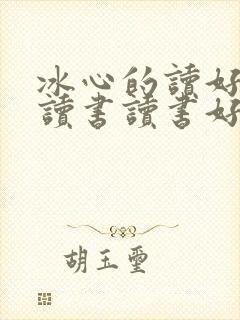 冰心的讀好
讀書讀書好
胡玉璽